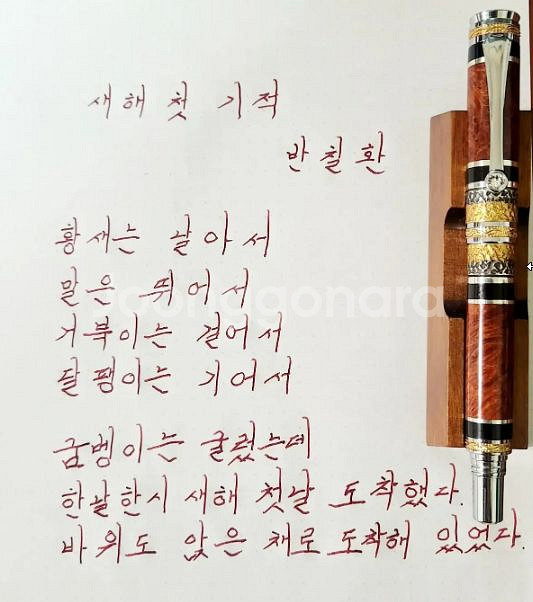 새해 첫 기적
반칠환
황새는 날아서
말은 뛰어서
거북이는 걸어서
달팽이는 기어서
굼벵이는 굴렀는데
한날한시 새해 첫날 도착했다.
바위도 앉은 채로 도착해 있었다.
joonggonara